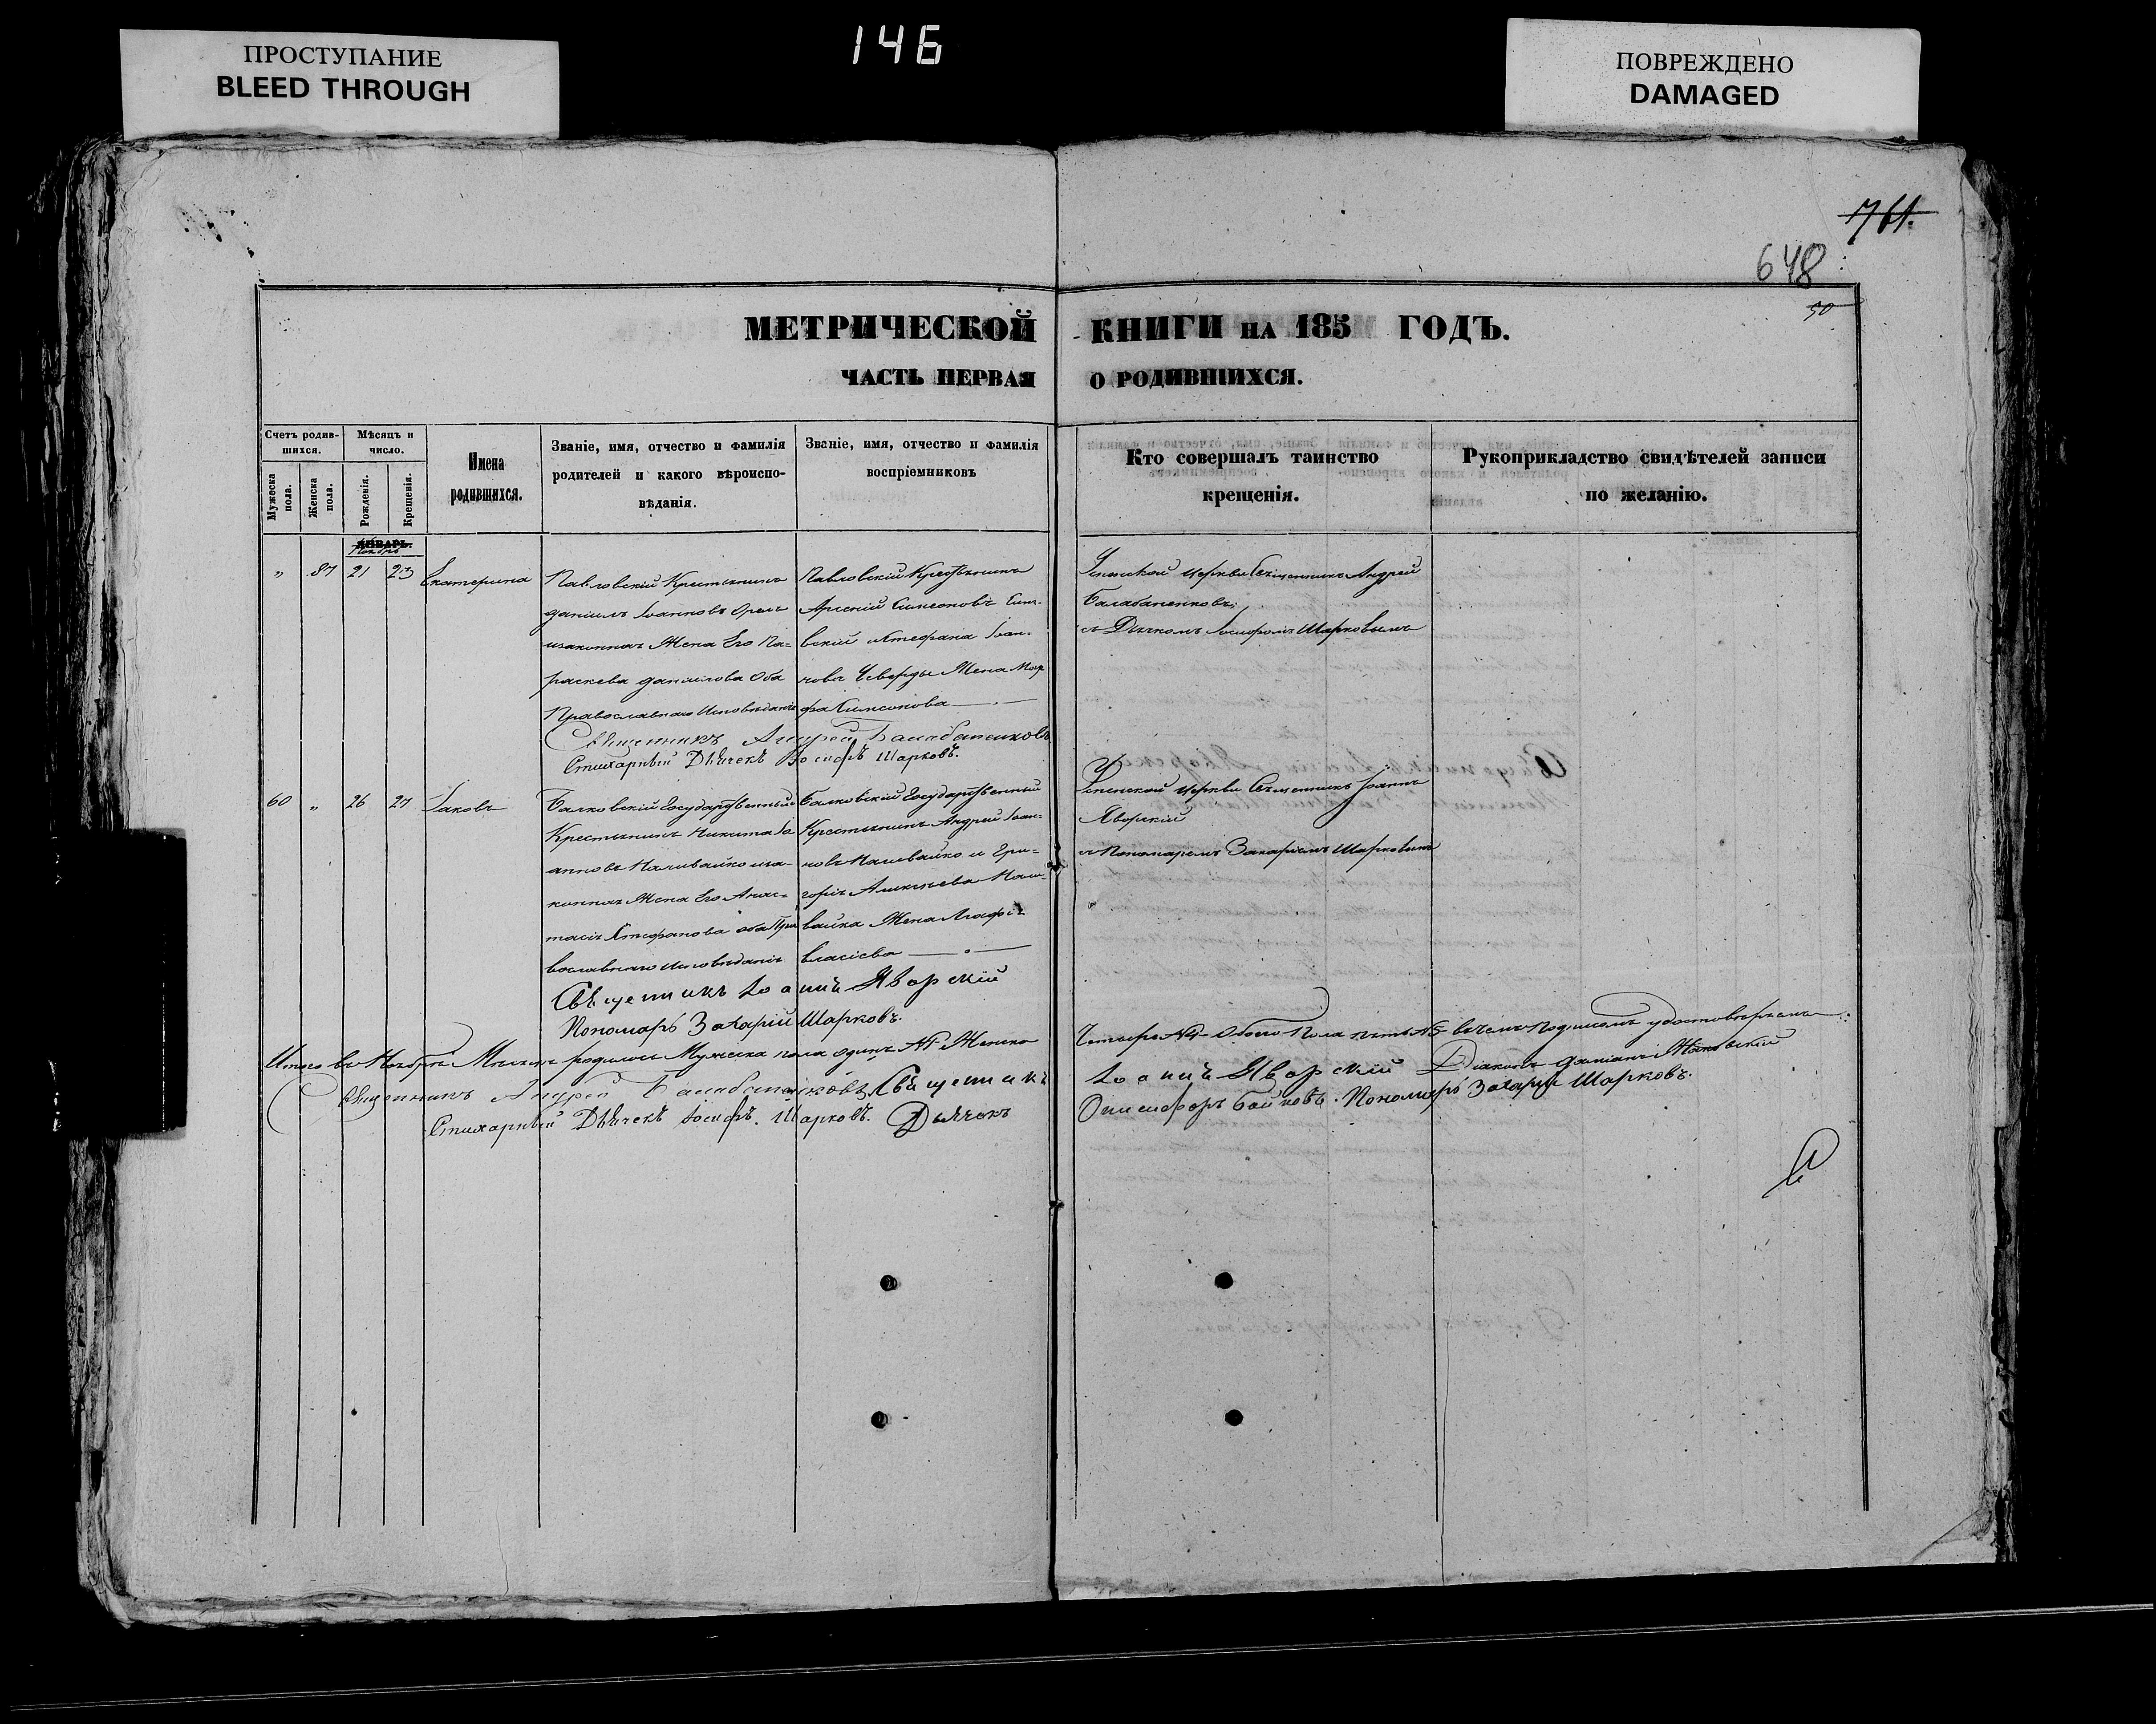 ПРОСТУПАНИЕ
BLEED THROUGH
146
ПОВРЕЖДЕНО
DAMAGED
761.
648
50
МЕТРИЧЕСКОЙ КНИГИ НА 185 ГОДЪ.
ЧАСТЬ ПЕРВАЯ О РОДИВШИХСЯ.
Счетъ родив-
шихся.
Мужеска пола.
Женска пола.
Мѣсяцъ и
число.
Рожденія.
Крещенія.
Имена
родившихся.
Званіе, имя, отчество и фамилія
родителей и какого вѣроиспо-
вѣданія.
Званіе, имя, отчество и фамилія
воспріемниковъ
Кто совершалъ таинство
крещенія.
Рукоприкладство свидѣтелей записи
по желанію.
ЯНВАРЬ.
Ноябрь
" 87 21 23 Екатерина
Павловскій Крестьянинъ
Даніилъ Іоанновъ Орелъ
изаконная Жена Его Па-
раскева Даніилова Оба
Православнаго Исповѣданія
Павловскій Крестьянинъ
Арсеній Симеоновъ
вскій Стефана Іоан-
нова Жена Мар
фа Симеонова
Успенской Церкви Священникъ Андрей
Балабаненковъ
съ Дьячкомъ Іосифомъ Шарковымъ
Священникъ Андрей Балабаненковъ
Стихарный Дьячекъ Іосифъ Шарковъ.
60 " 26 27 Іаковъ
Балковскій Государственный
Крестьянинъ Никита Іо
анновъ Наливайко иза-
конная Жена Его Анас-
тасія Стефанова оба Пра
вославнаго исповѣданія
Балковскій Государственный
Крестьянинъ Андрей Іоан-
новъ Наливайко и Гри-
горія Алексѣева Нали-
вайка Жена Агафія
Власіева
Успенской Церкви Священникъ Іоаннъ
Яворскій
съ Пономаремъ Захаріемъ Шарковымъ
Священникъ Іоаннъ Яворскій
Пономарь Захарій Шарковъ.
Итого въ Ноябрѣ Мѣсяцѣ родилось Мужеска пола одинъ №1 Женска
Четыре №4 Обоего Пола пять №5 въ чемъ Подписомъ удостовѣряемъ:
Священникъ Андрей Балабаненковъ, Священникъ
Іоаннъ Яворскій Діаконъ Даміанъ
Стихарный Дьячекъ Іосифъ Шарковъ. Дьячокъ
Онисифоръ Бойковъ. Пономарь Захарій Шарковъ.